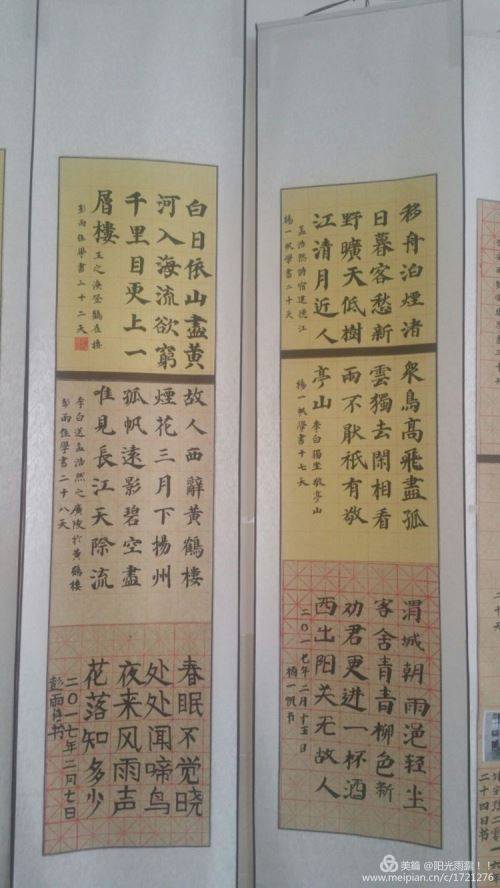 白日依山盡黄
河入海流欲窮
千里目更上一
層樓 王之渙登鸛雀樓
彭雨佳學書二十二天
故人西辭黄鶴樓
煙花三月下揚州
孤帆遠影碧空盡
唯見長江天除流
李白送孟浩然之廣陵於黄鶴樓
彭雨佳學書二十八天
春眠不觉晓
处处闻啼鸟
夜来风雨声
花落知多少
二〇一七年二月七日
彭雨佳书
移舟泊煙渚
日暮客愁新
野曠天低樹
江清月近人
孟浩然詩宿建德江
楊一帆學書二十天
眾鳥高飛盡孤
雲獨去閑相看
兩不厭衹有敬
亭山 李白獨坐敬亭山
楊一帆學書十七天
渭城朝雨浥轻尘
客舍青青柳色新
劝君更进一杯酒
西出阳关无故人
二〇一七年二月十五日
杨一帆书
美篇 @阳光雨露！！
www.meipian.cn/c/1721276